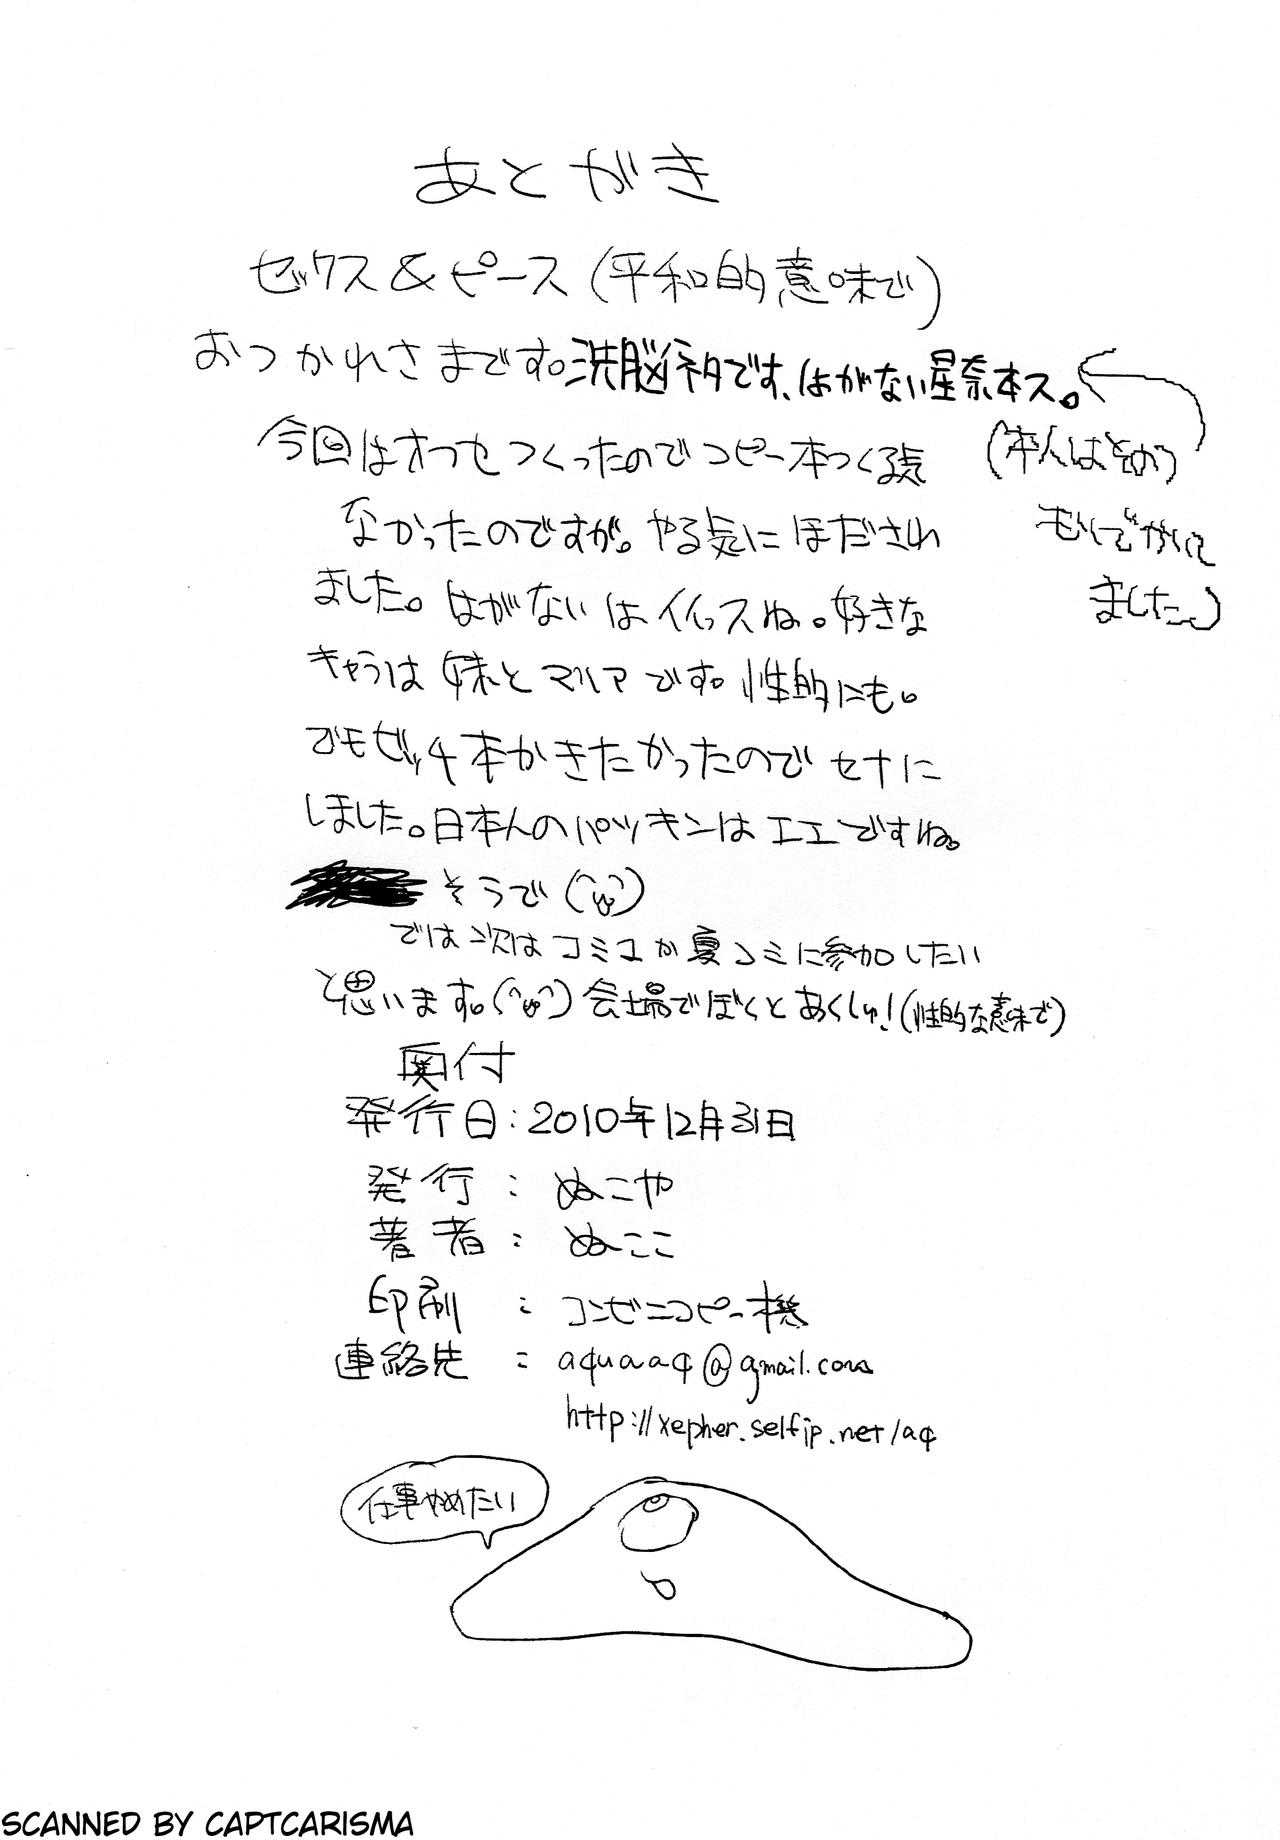 あとがき
セックス&ピース(平和的意味で)
おつかれさまです。洗脳ネタです、はがない星奈本ス。
(本人はその
つもりでかいて
ました。)
今回はオフセつくったのでコピー本つくる気
なかったのですが。やる気にほだされ
ました。はがないはイイっスね。好きな
キャラは妹とマリアです。性的にも。
でもビッチ本かきたかったのでセナに
しました。日本人のパツキンはエエですね。
そうで(^ω^)
では次はコミ1か夏コミに参加したい
と思います。(^ω^)会場でぼくとあくしゅ!(性的な意味で)
奥付
発行日:2010年12月31日
発行:ぬこや
著者:ぬここ
印刷:コンビニコピー機
連絡先:aquaaq@gmail.com
http://xepher.selfip.net/aq
仕事やめたい
SCANNED BY CAPTCARISMA